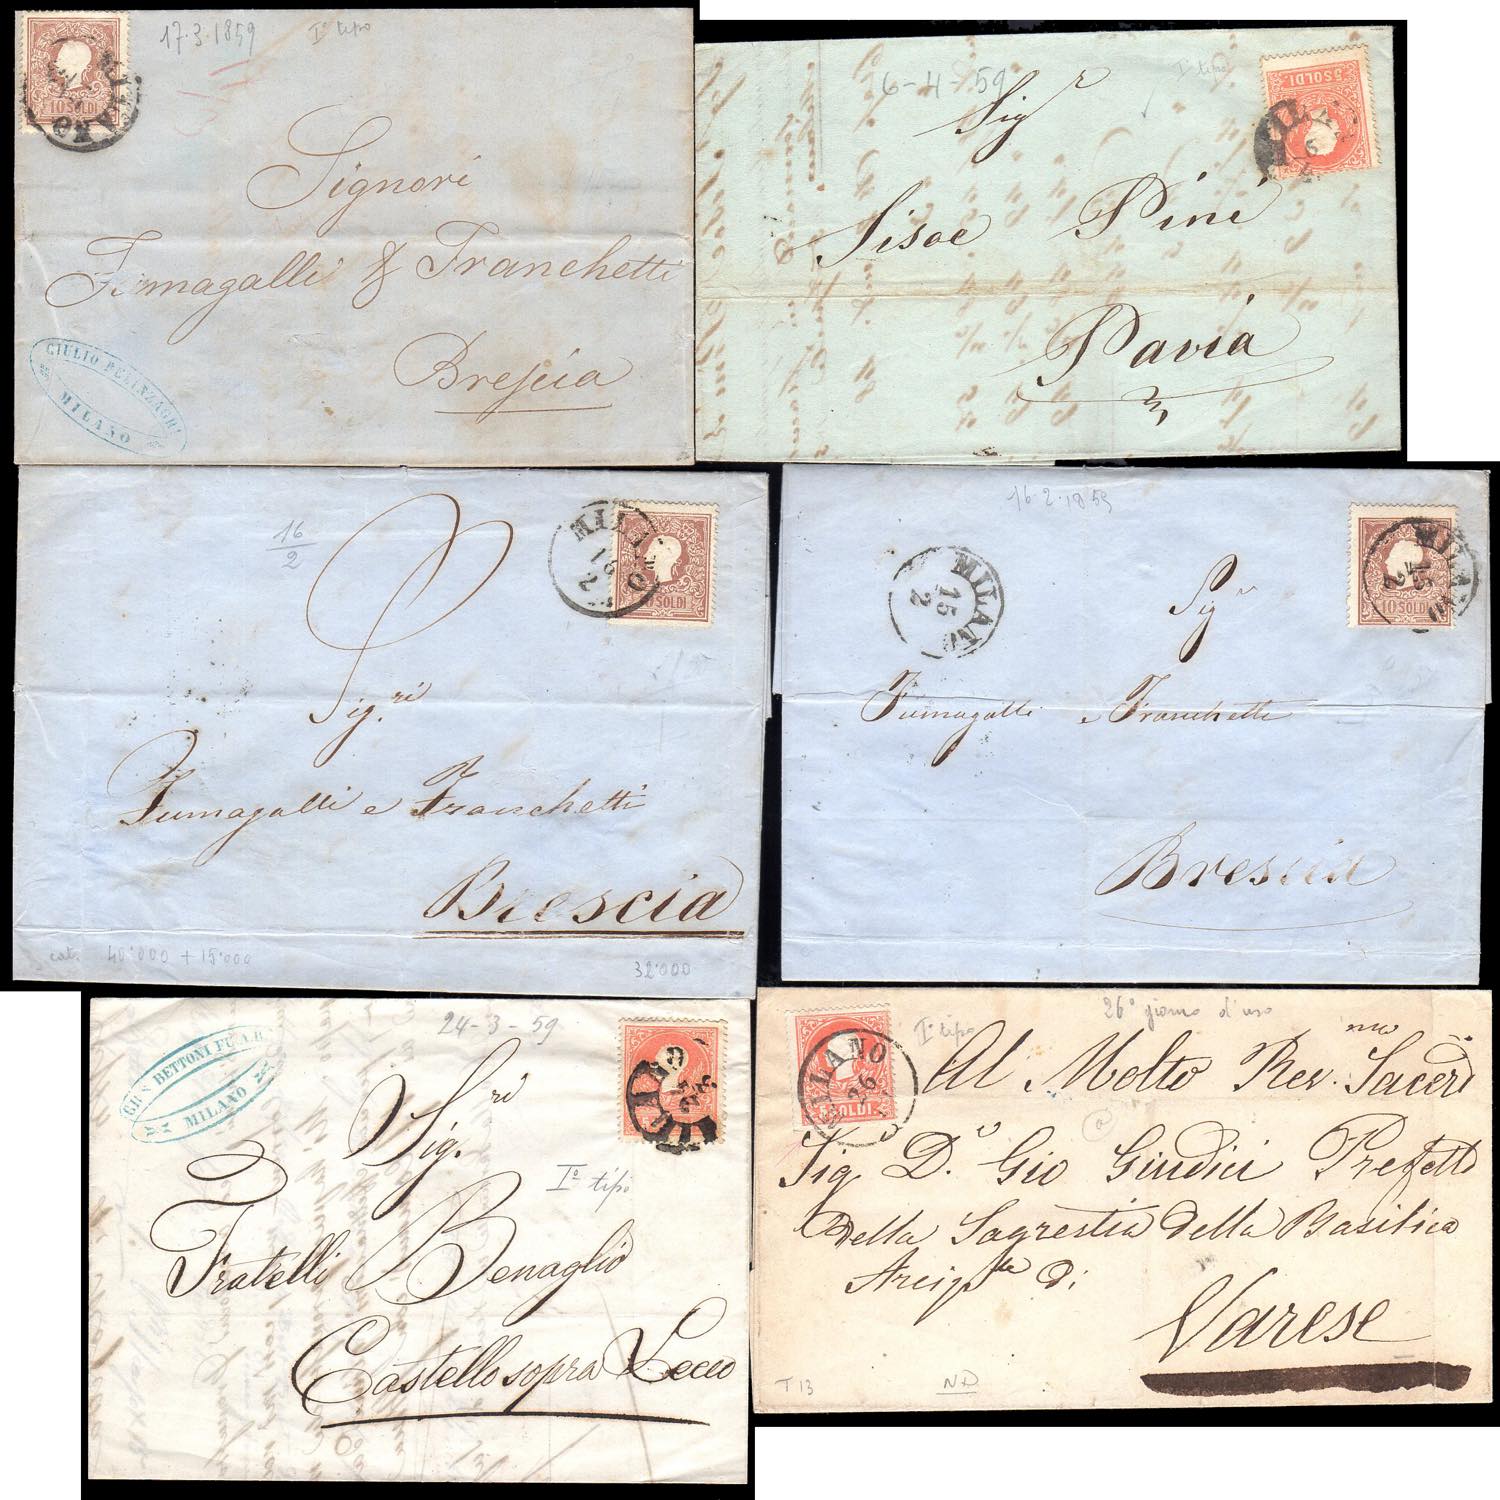 17·3·1859
I° tipo
10 SOLDI
MILANO
Signori
Fumagalli & Franchetti
Brescia
GIULIO BELINZAGHI
MILANO
6-4-59
I° tipo
5 SOLDI
MILANO
6
4
Sigr
Sisoe Pini
Pavia
16
2
MILANO
16
2
SOLDI
Sig.ri
Fumagalli e Franchetti
Brescia
cat. 40.000 + 15.000
32.000
16·2·1859
MILANO
15
2
MILANO
15
2
10 SOLDI
Sigr
Fumagalli e Franchetti
Brescia
24-3-59
BETTONI FU A.B.
MILANO
Sig.ri
I° tipo
Fratelli Benaglio
Castello sopra Lecco
26° giorno d'uso
I° tipo
MILANO
26
5 SOLDI
Al Molto Rev.mo Sacerd
Sig D.n Gio Giudici Prefetto
della Sagrestia della Basilica
di
Varese
T 13
ND